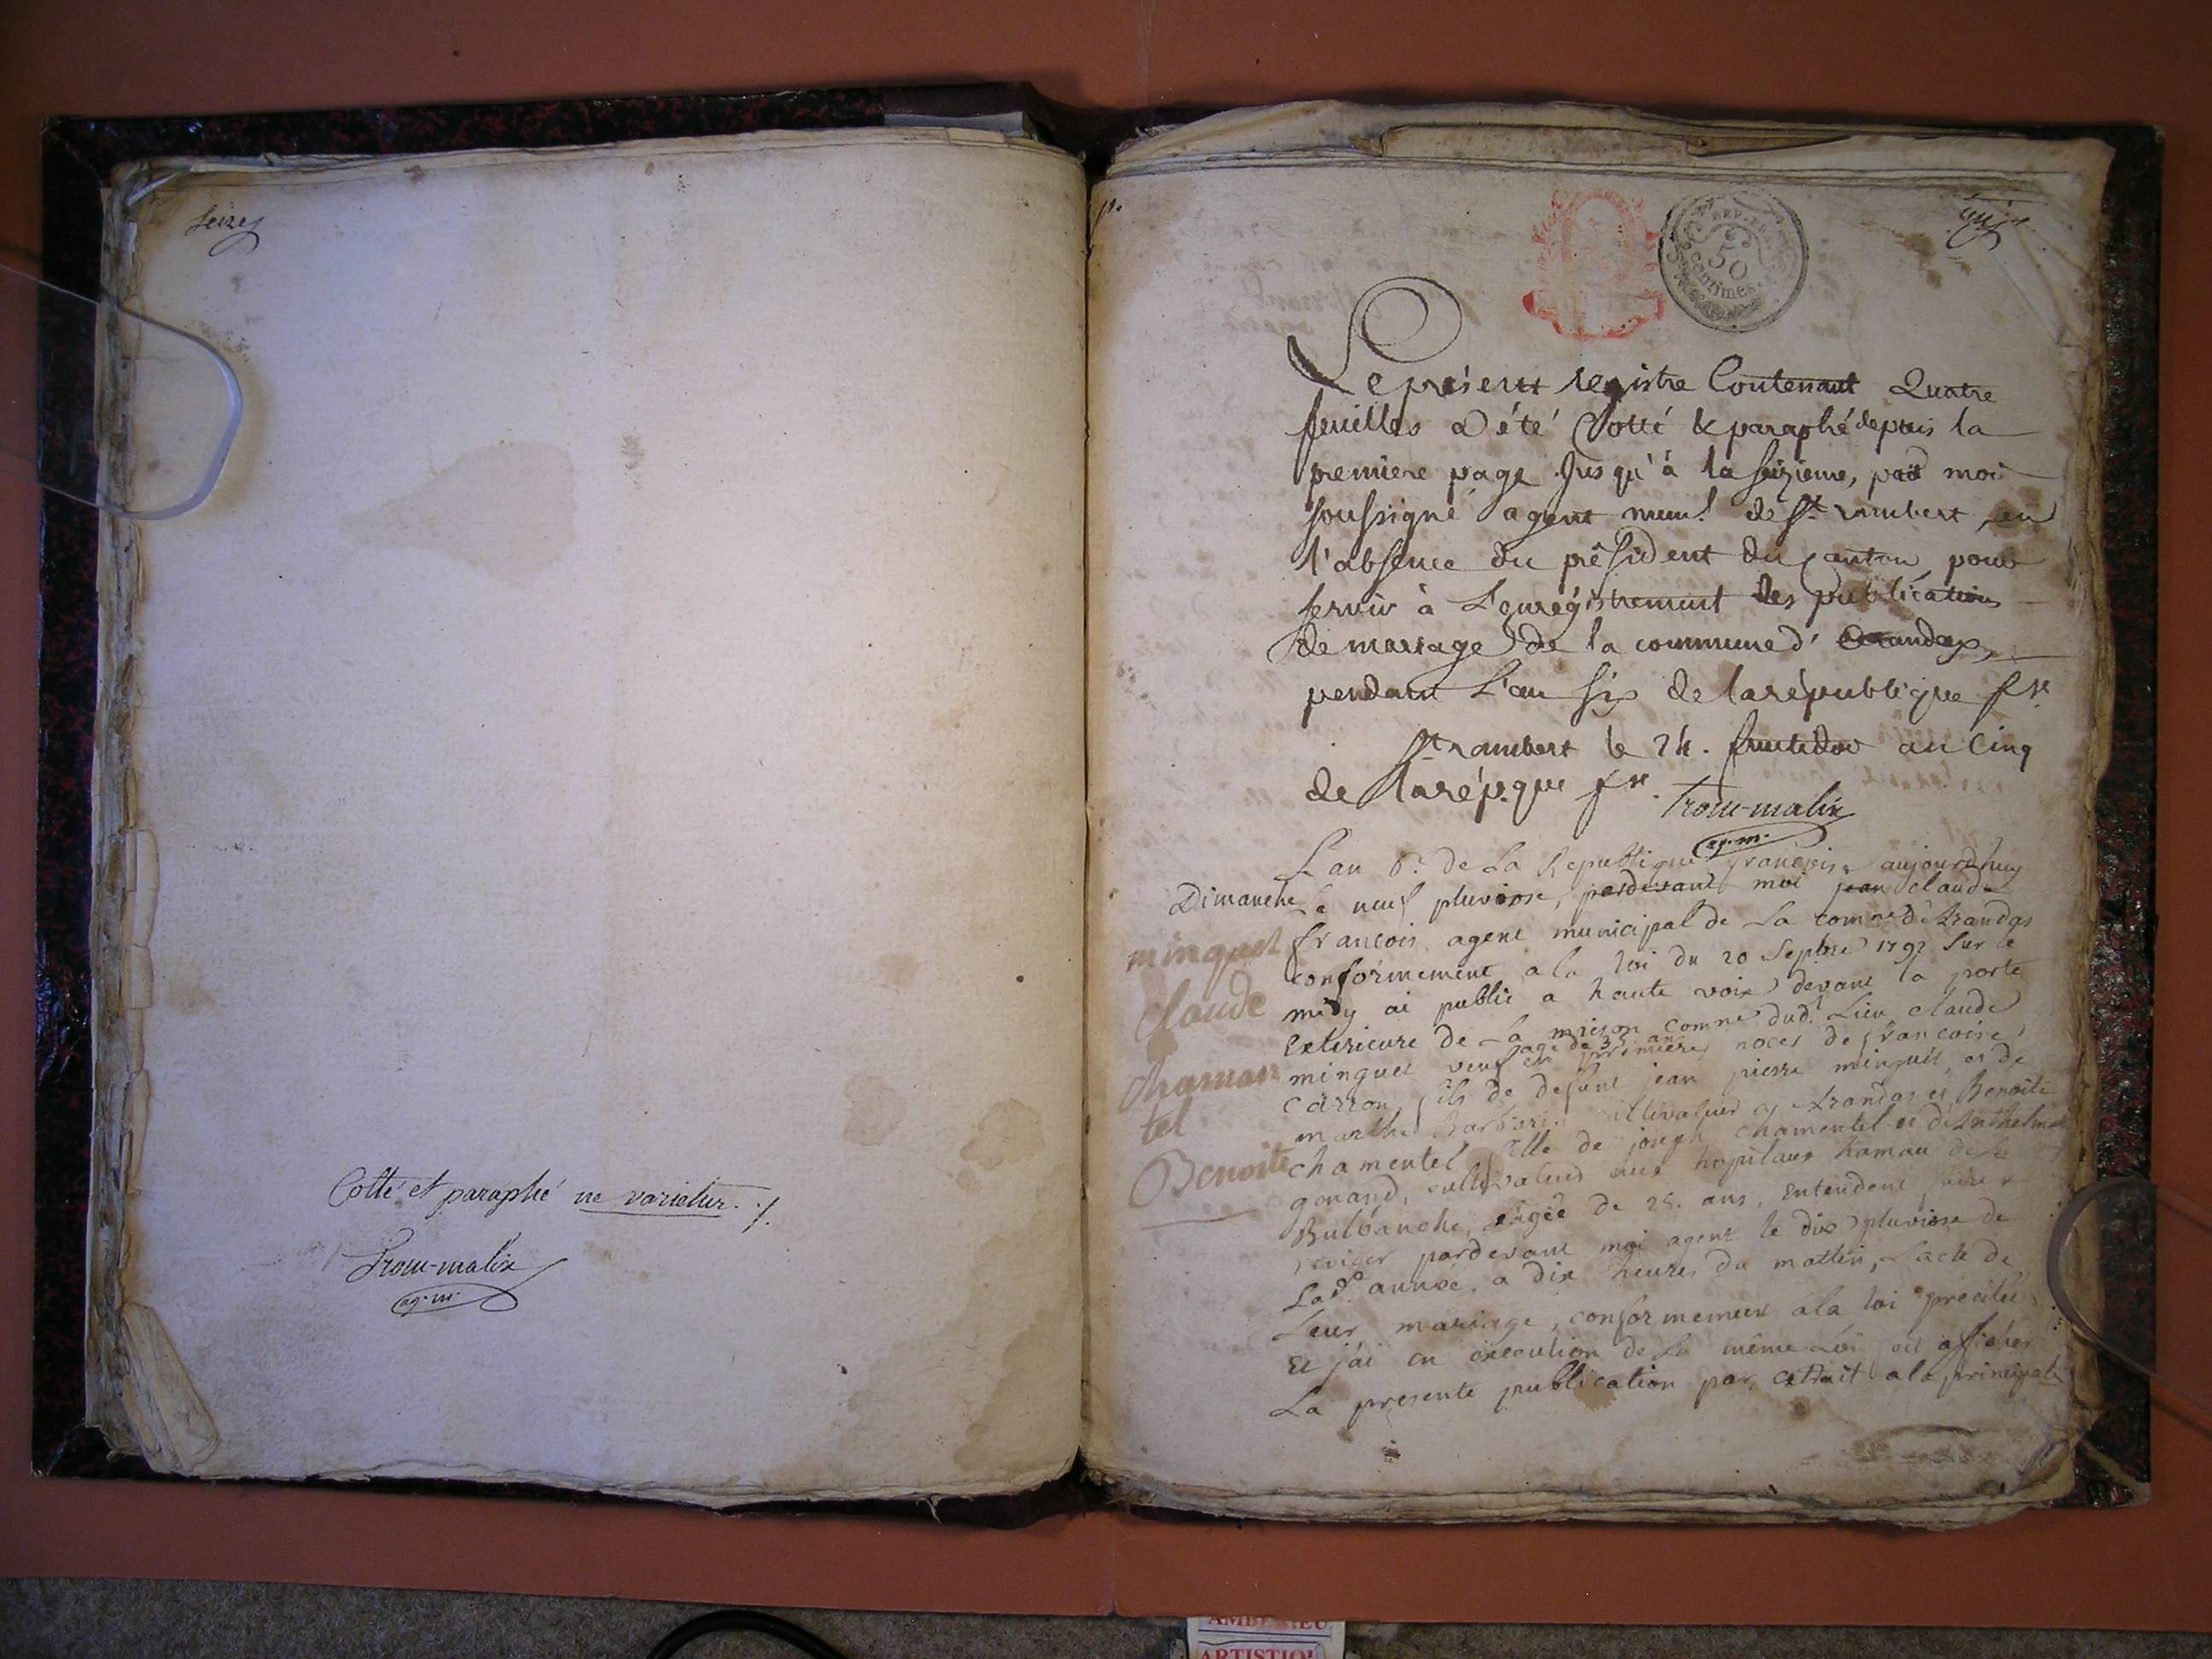 seize
Cotté et paraphé ne varietur ./.
Trocu-malix
ag. m.
p.
REP. FRA.
50
centimes
un
Le présent registre Contenant Quatre
feuilles a été Cotté & paraphé depuis la
premiere page jusqu'à la seizieme, par moi
soussigné agent mun.l de St rambert, en
l'absence du président du canton, pour
servir à L'enrégistrement des publications
de mariage de la commune d' arandas,
pendant L'an six de la république fse
St rambert le 24. fructidor an Cinq
de la rép.que fse.
Trocu-malix
ag. m.
L'an 6e de La Republique francoise aujourdhuy
Dimanche le neuf pluviose, pardevant moi jean claude
francois agent municipal de La comne d'Arandas
conformement a la loi du 20 Septbre 1792 sur le
midy ai publié a haute voix devant la porte
Exterieure de La maison comne dud. Lieu claude
agé de 35 ans
minguet veuf en premieres noces de francoise
carron, fils de defunt jean pierre minguet et de
marthe cultivateur a Arandas et Benoite
chamentel fille de joseph chamentel et d'Anthelmette
gonand, cultivateurs aux hopitaux hamau de la
Bulbanche, aigée de 28. ans, Entendent faire
rediger pardevant moi agent le dix pluviose de
Lad.e année, a dix heures du mattin, L'acte de
Leur mariage, conformement a la loi précitée
Et j'ai en execution de La même Loi fait afficher
La presente publication par extrait a la principale
minguet
claude
chaman
tel
Benoite
AMBERIEU
ARTISTIQU